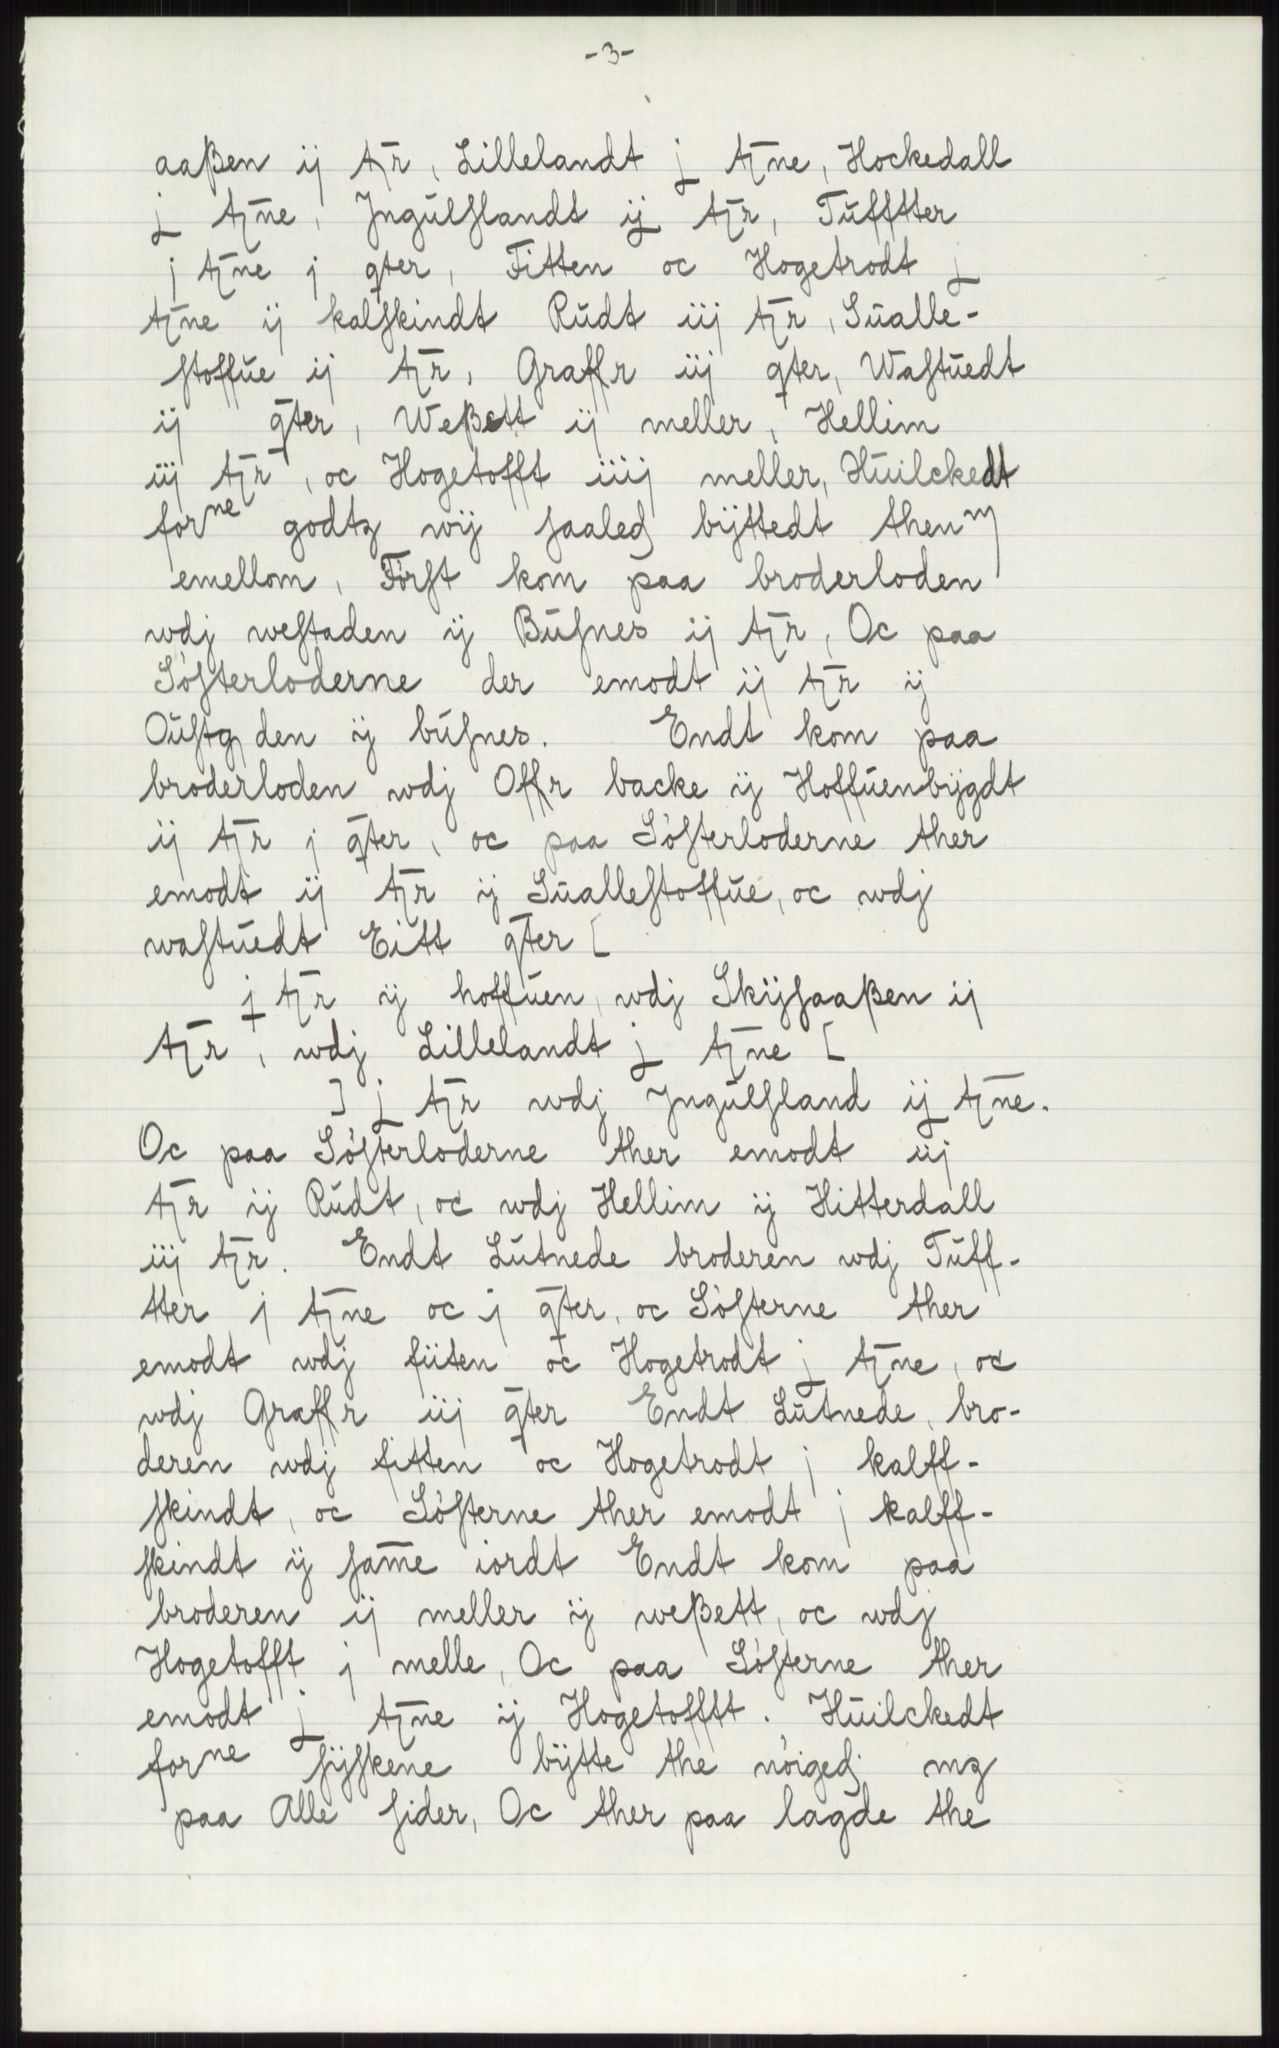 -3-
aaßen ij tr̄, Lillelandt j tn̄e, Hockedall
j tn̄e, Jngulslandt ij tr̄, Tufftter
j tn̄e j qter, Fitten oc Hogetrodt j
tn̄e ij kalskindt Rudt iij tr̄, Sualle-
stoffue ij tr̄, Graffr iij qter, Wastuedt
ij qter, Weßett ij meller, Hellim
iij tr̄, oc Hogetofft iiij meller, Huilckedt
forne godtz wij saaleds bÿttedt thenm
emellom, Först kom paa broderloden
wdj westaden ij Busnes ij tr̄, Oc paa
Sösterloderne der emodt ij tr̄ ij
Oustg den ij busnes. Endt kom paa
broderloden wdj Offr backe ij Hoffuenbijgdt
ij tr̄ j qter, oc paa Sösterloderne ther
emodt ij tr̄ ij Suallestoffue, oc wdj
wastuedt Eitt qter [
j tr̄ ij hoffuen, wdj Skijsaaßen ij
tr̄, wdj Lillelandt j tn̄e [
] j tr̄ wdj Jngulsland ij tn̄e.
Oc paa Sösterloderne ther emodt iij
tr̄ ij Rudt, oc wdj Hellim ij Hitterdall
iij tr̄. Endt Lutnede broderen wdj Tuff-
tter j tn̄e oc j qter, oc Sösterne ther
emodt wdj fiiten oc Hogetrodt j tn̄e, oc
wdj Graffr iij qter Endt Lutnede, bro-
deren wdj fitten oc Hogetrodt j kalff-
skindt, oc Sösterne ther emodt j kalff-
skindt ij sam̄e iordt Endt kom paa
broderen ij meller ij weßett, oc wdj
Hogetofft j melle, Oc paa Sösterne ther
emodt j tn̄e ij Hogetoffft. Huilckedt
forne sijskene bÿtte the nöigeds mz
paa Alle sider, Oc ther paa lagde the